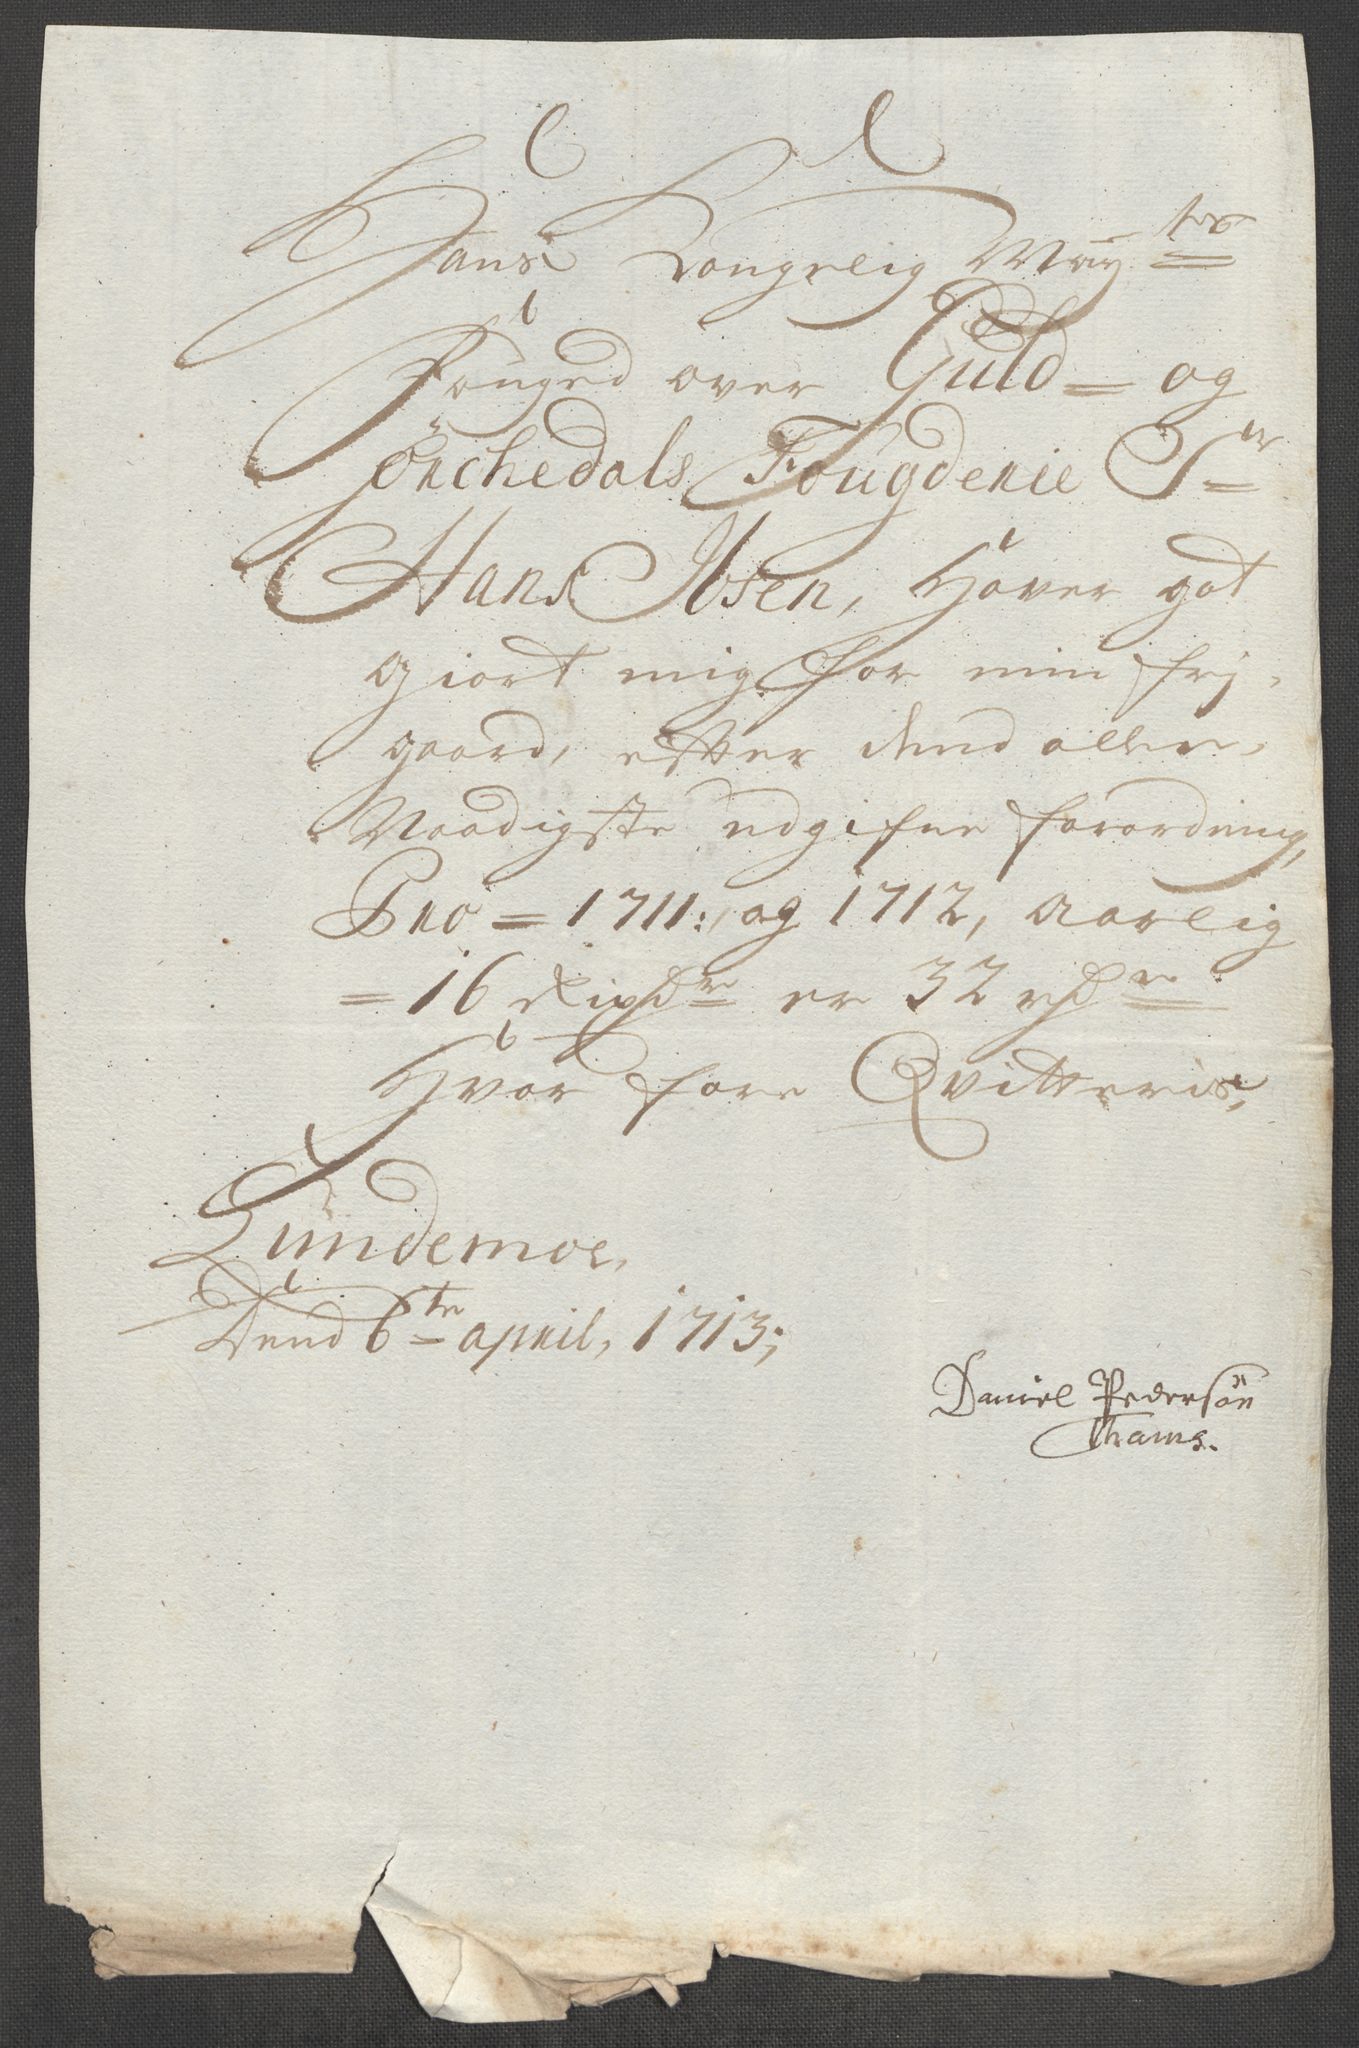 Hans Kongelig May:ts
Fouged over Guld= og
Örchedals Fougderie Sr
Hans Ibsen, Haver got
giort mig for min frj,
gaard, efter dend aller,
Naadigste udgifne forordning,
Pro = 1711: og 1712, aarlig
= 16 Rixdr er 32 rdr
Hvor fore Qvitteris,
Lundemoe,
Dend 6te april, 1713;
Daniel Pedersøn
Thams.